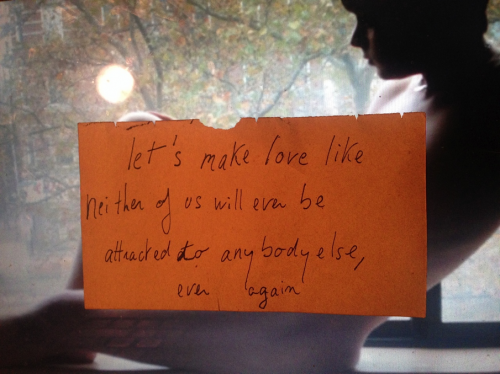 let's make love like
neither of us will ever be
attracted to anybody else,
ever again